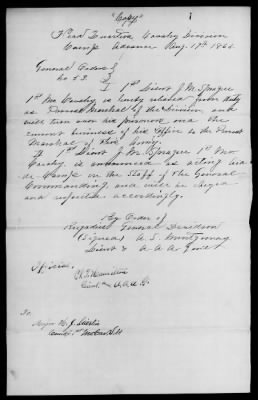 "Copy"
Head Quarters Cavalry Division
Camp Advance Aug. 17th 1863.
General Orders
No 53.
I 1st Lieut J. M. Sprague
1st Mo Cavalry is hereby relieved from duty
as Provost Marshal of the Division and
will turn over his prisoners and the
current business of his Office to the Provost
Marshal of the Army.
II 1st Lieut J. M. Sprague 1st Mo
Cavalry, is announced as acting Aid
de Camp on the Staff of the General
Commanding and will be obeyed
and respected accordingly.
By Order of
Brigadier General Davidson
(Signed) A. S. Montgomery
Lieut & A A A Genl
Official
Lieut. A.A.A.G.
To.
Major
Comdg 1st